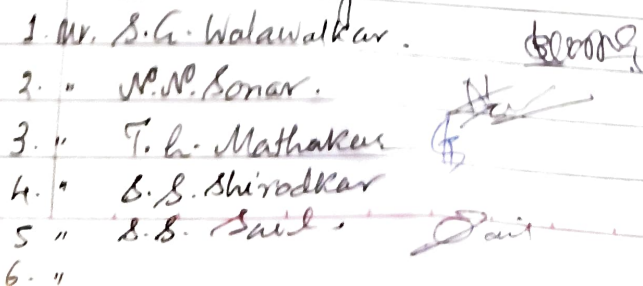 1. Mr. S.G. Walawalkar.
2. " N.N. Sonar.
3. " T.L. Mathakar
4. " S.S. Shirodkar
5 " S.S. Sail. Sail
6. "